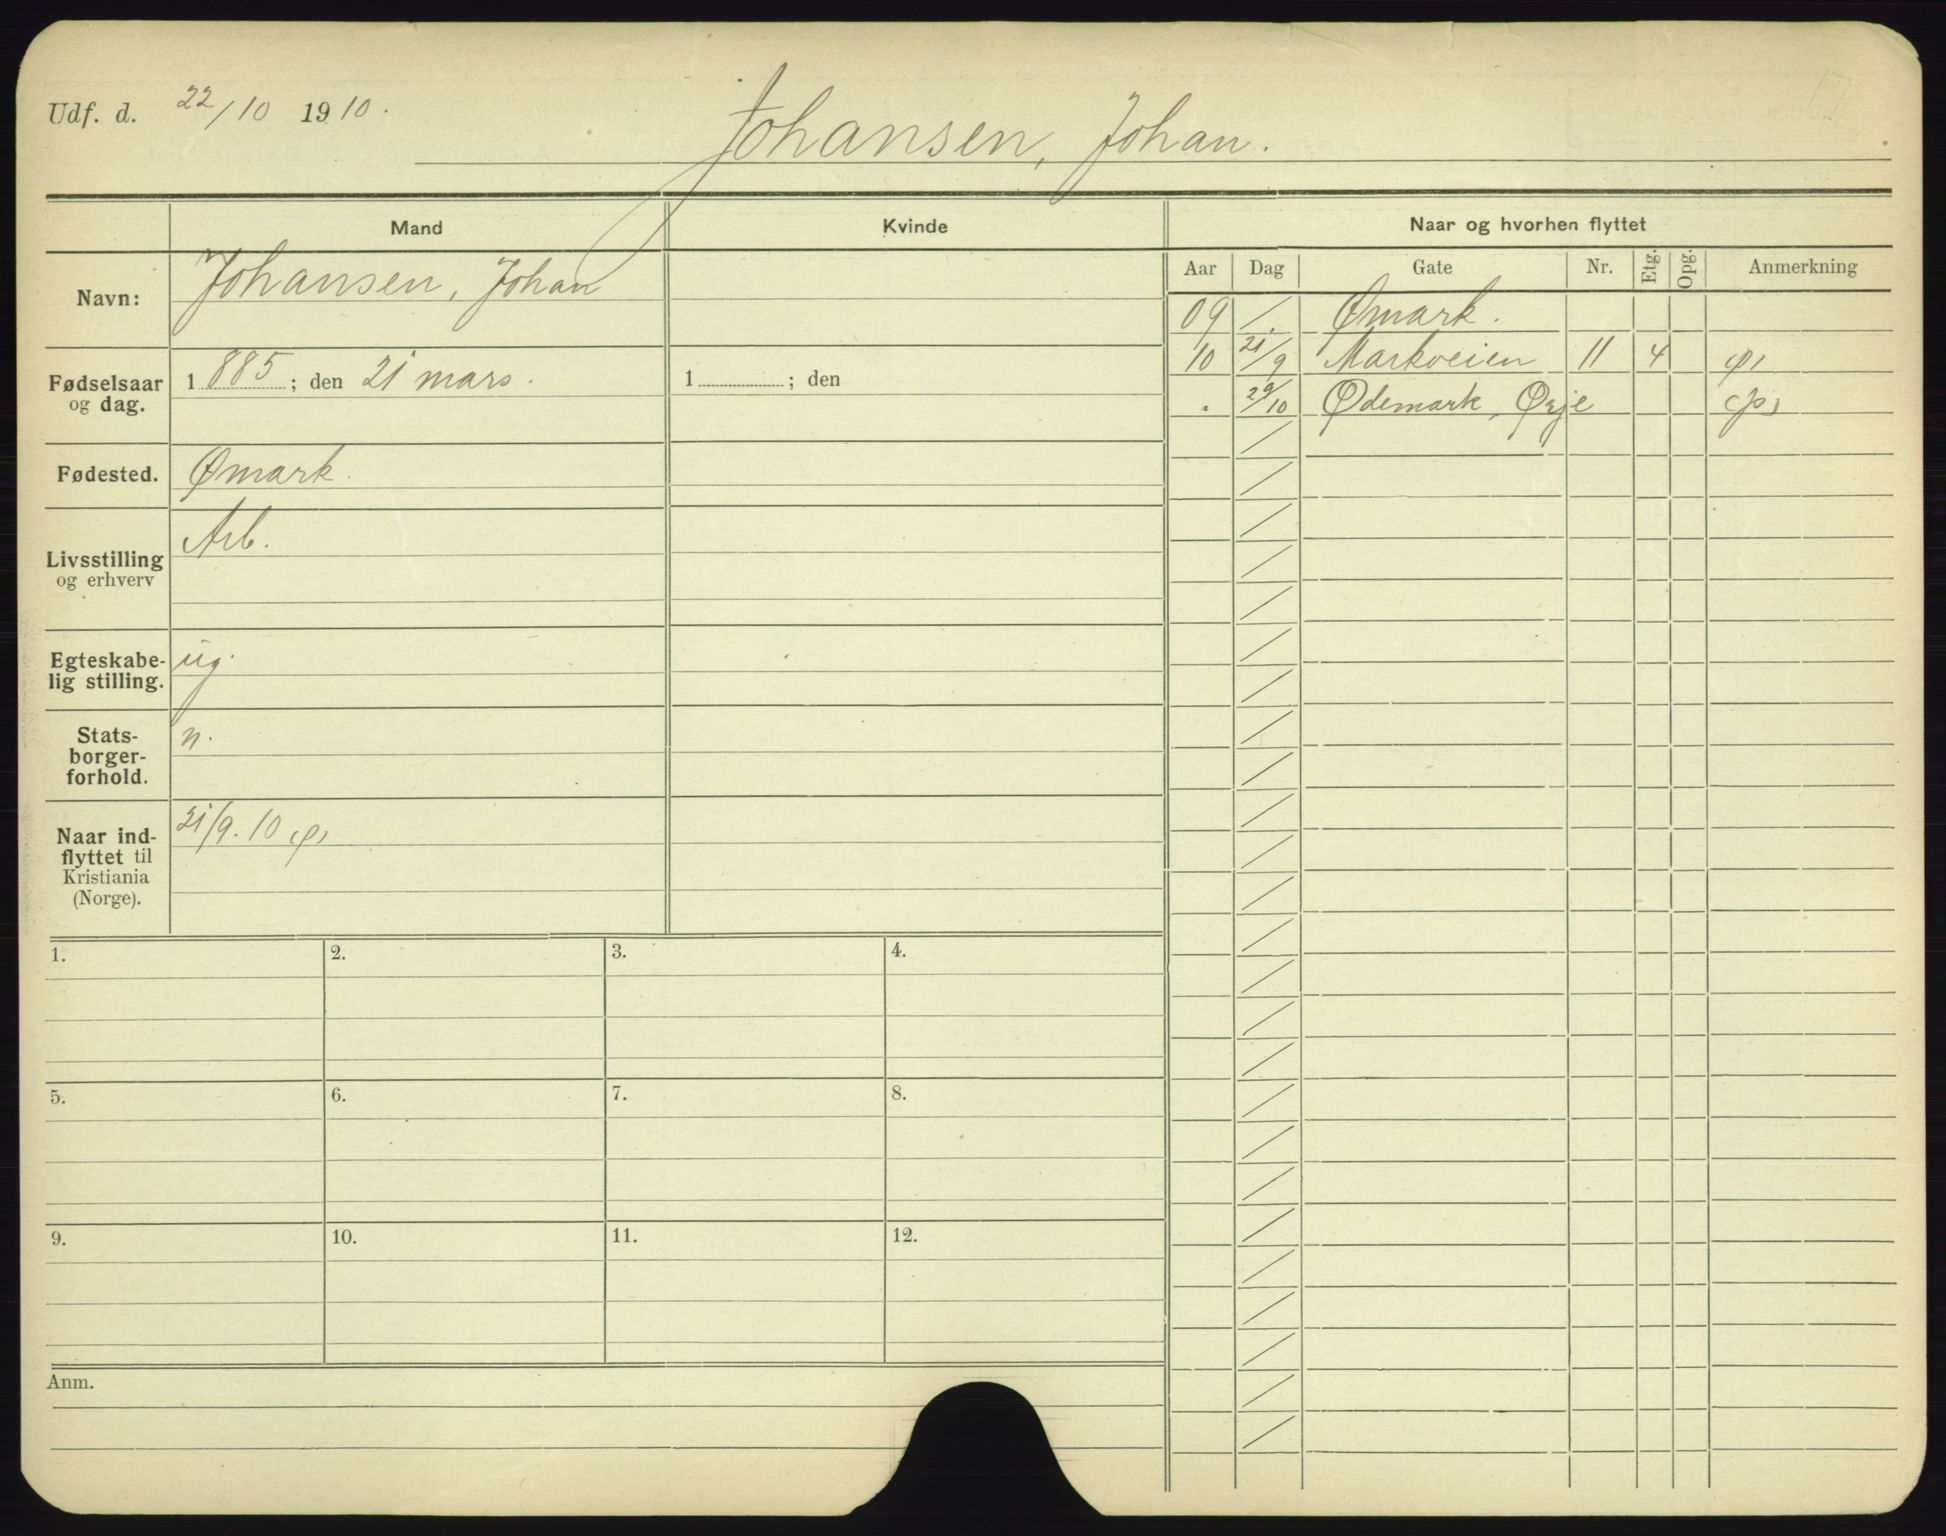 Udf. d. 22/10 1910.
Johansen, Johan.
Mand
Kvinde
Naar og hvorhen flyttet
Aar Dag Gate Nr. Etg. Opg. Anmerkning
Navn: Johansen, Johan
09 /. Ømark.
10 21/9 Markveien 11 4 (p)
. 29/10 Ødemark, Ørje (p)
Fødselsaar og dag. 1885; den 21 mars.
1 ; den
Fødested. Ømark.
Livsstilling og erhverv Arb.
Egteskabe-
lig stilling. ug.
Stats-
borger-
forhold. n.
Naar ind-
flyttet til
Kristiania
(Norge). 21/9.10 (p)
1. 2. 3. 4.
5. 6. 7. 8.
9. 10. 11. 12.
Anm.